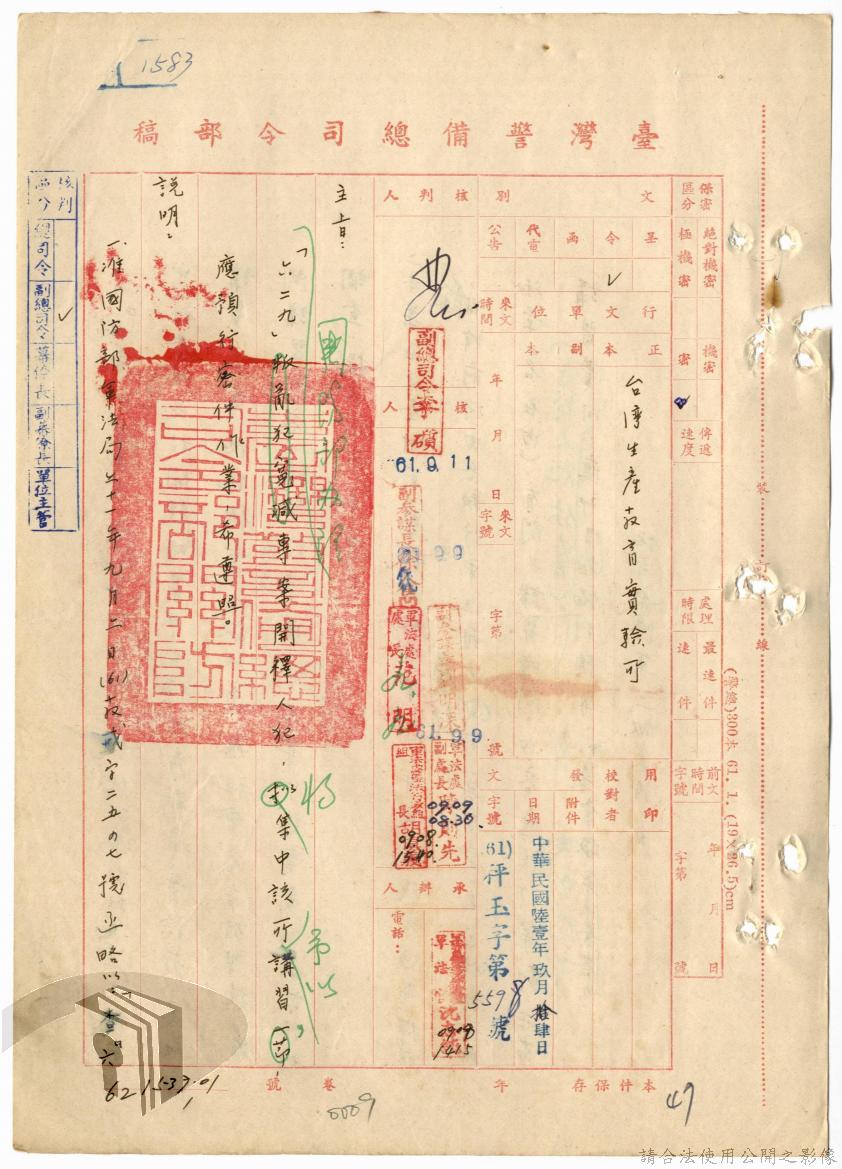 1583
臺灣警備總司令部稿
保密區分
絕對機密
極機密
機密
密
傳遞速度
處理時限
最速件
速件
前文時間字號
年 月 日
字第 號
文別
呈
令
函
代電
公告
行文單位
正本
副本
台灣生產教育實驗所
來文時間
年 月 日
來文字號
字第 號
用印
校對者
發文
附件
日期
中華民國陸壹年玖月拾肆日
字號
(61)秤玉字第5598號
核判人
副總司令李碩
61.9.11
核人
9.9
軍法處處長范明
61.9.9
軍法處副處長
09.09
08.30
組長胡
09.08.
1540.
承辦人
電話：
09.08
1415
主旨：
「六二九」叛亂犯冤減專案開釋人犯，
集中該所講習一節，
應預行密件作業，希遵照。
說明：
一、准國防部軍法局六十一年九月二日(61)教戎字二五0七號函略以：「查六
核判區分
總司令
副總司令
參謀長
副參謀長
單位主管
裝訂線
(警總)300本 61. 1. (19×26.5)cm
本件保存 年
卷 號
62 1537.01
0009
49
請合法使用公開之影像